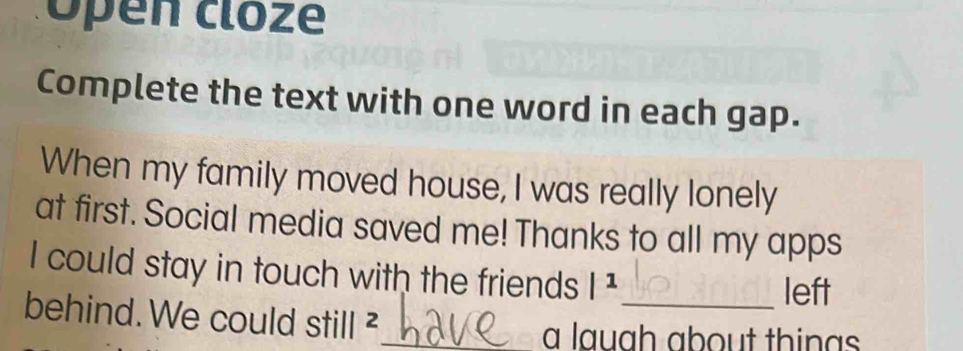 Open cloze
Complete the text with one word in each gap.
When my family moved house, I was really lonely
at first. Social media saved me! Thanks to all my apps
I could stay in touch with the friends I ¹ ________ left
behind. We could still ² have a laugh about things